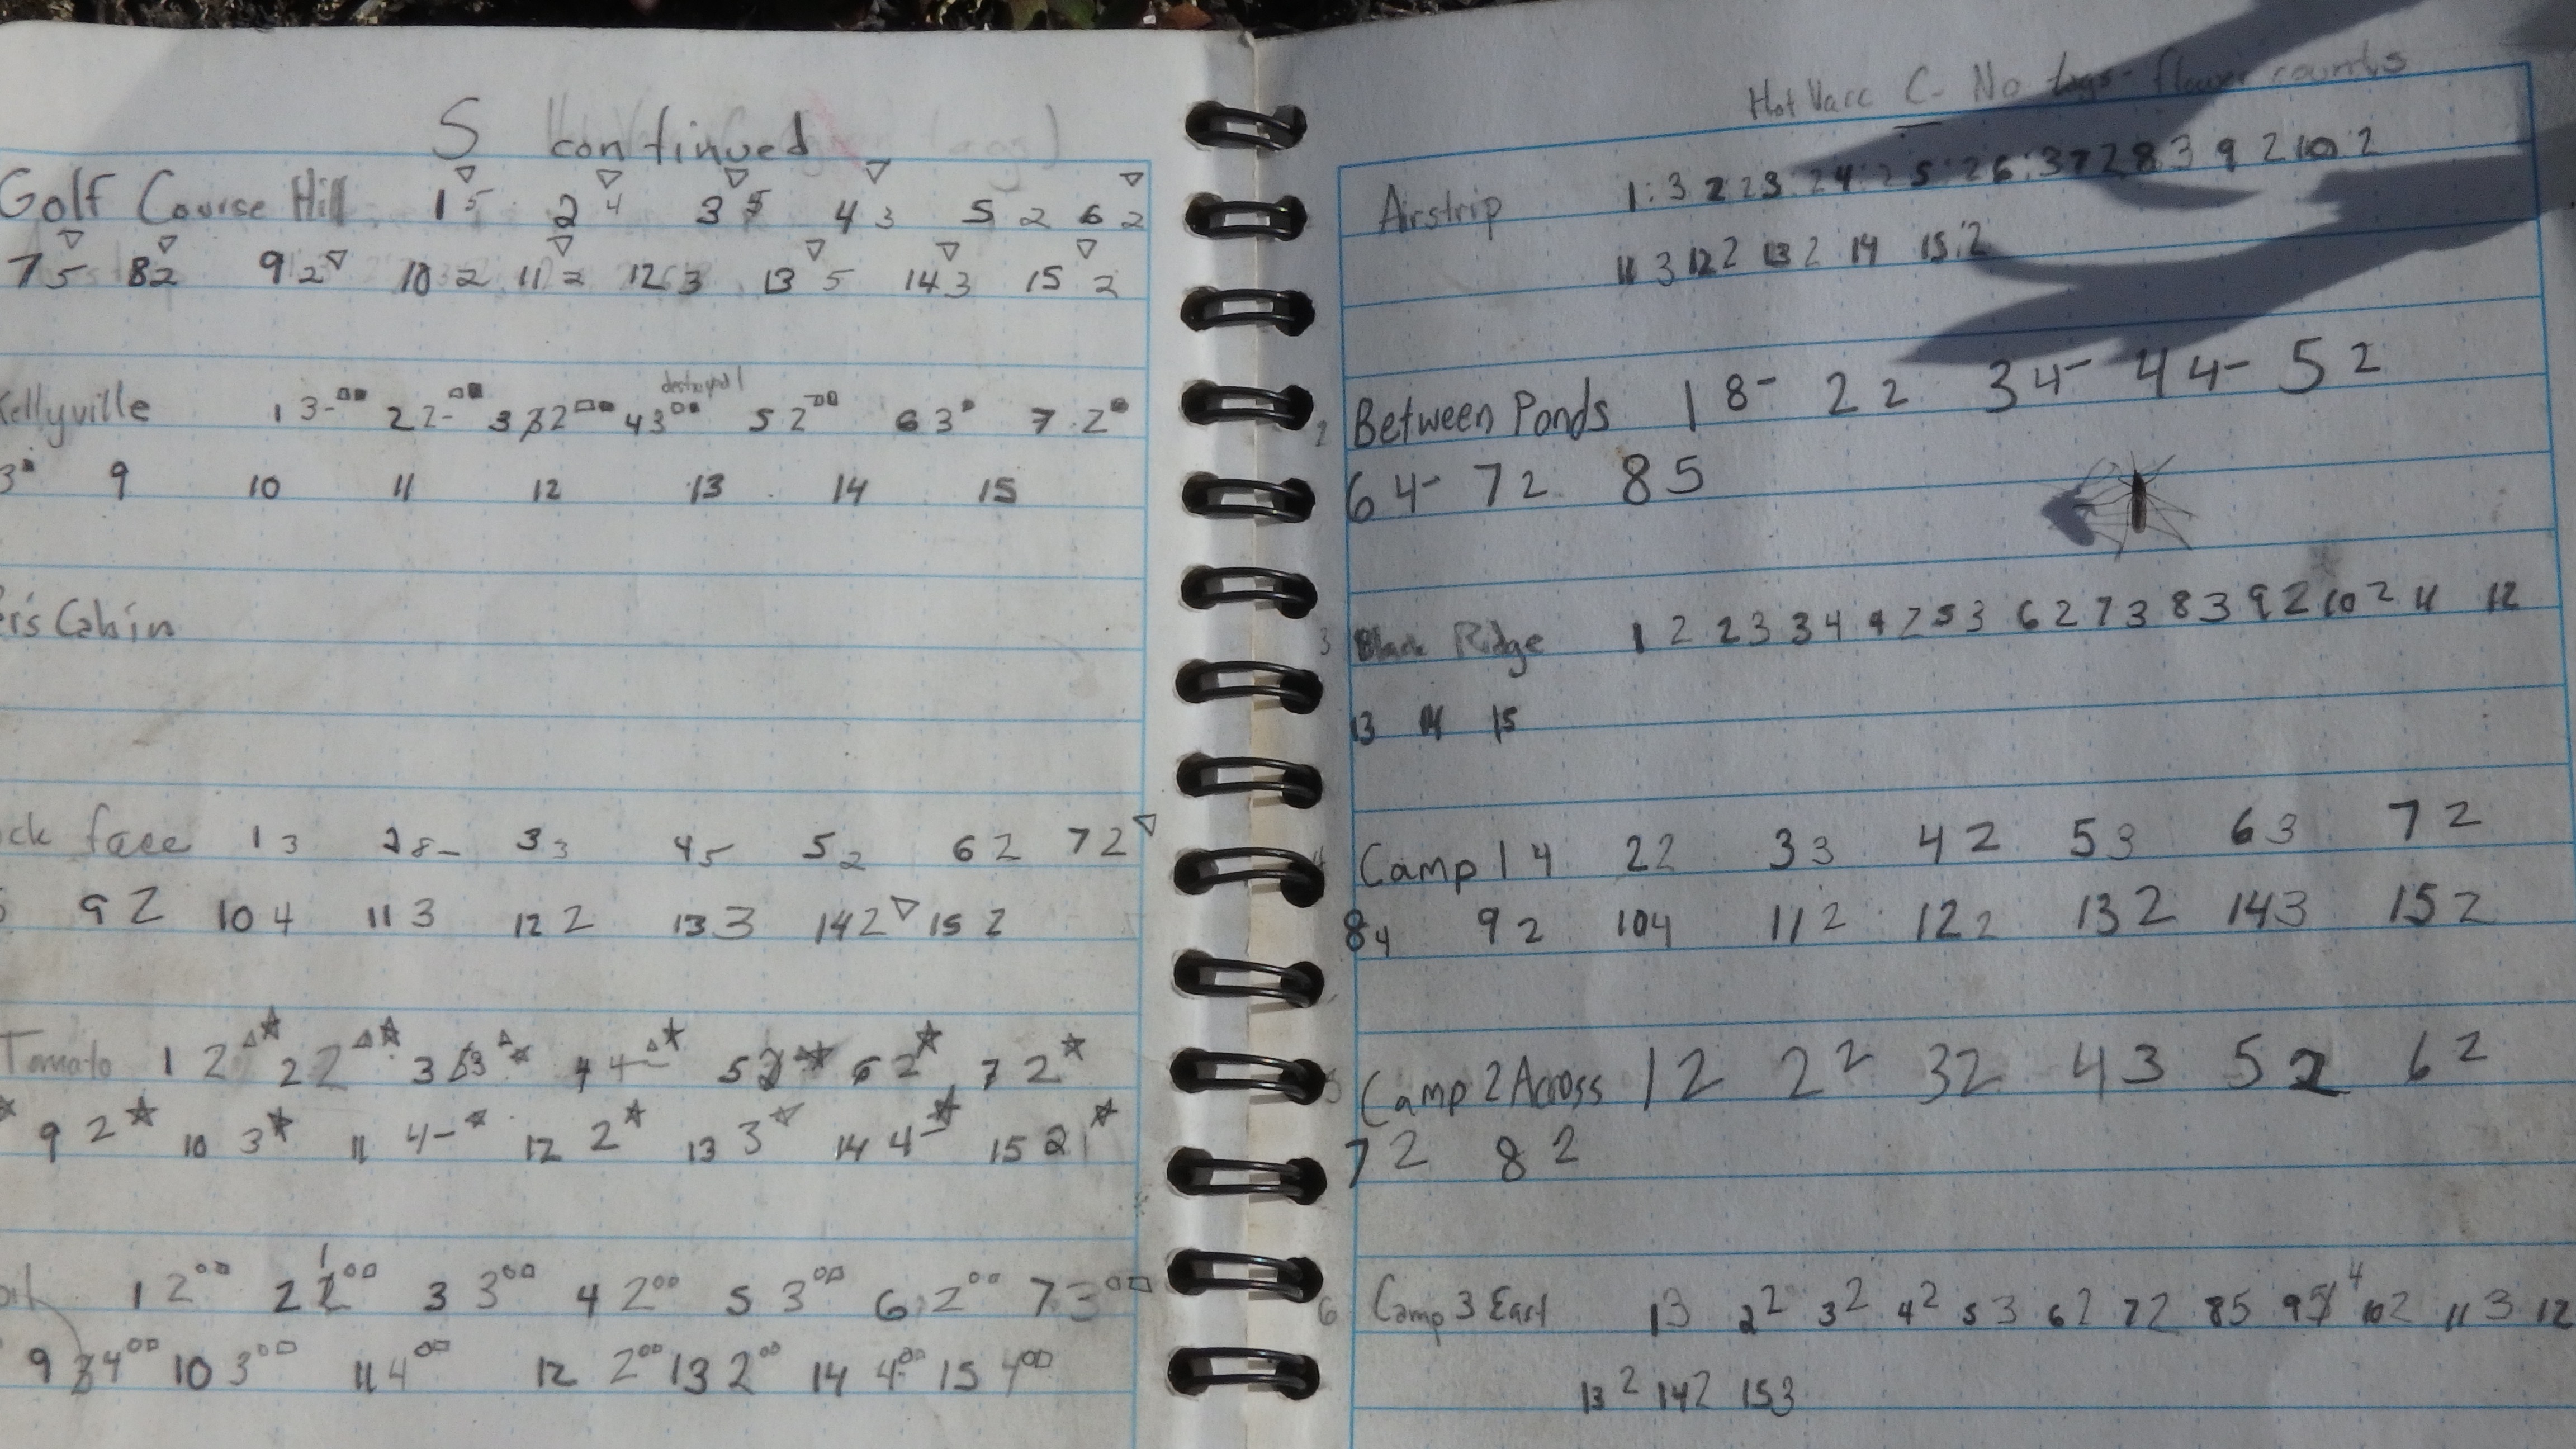 S continued
Golf Course Hill 1 5 2 4 3 5 4 3 5 2 6 2
7 5 8 2 9 2 10 2 11 2 12 3 13 5 14 3 15 2
Kellyville 1 3- 2 2- 3 2 4 3 destroyed! 5 2 6 3 7 2
3 9 10 11 12 13 14 15
er's Cabin
ck face 1 3 2 8- 3 3 4 5 5 2 6 2 7 2
9 2 10 4 11 3 12 2 13 3 14 2 15 2
Tomato 1 2 2 2 3 3 4 4- 5 2 6 2 7 2
9 2 10 3 11 4- 12 2 13 3 14 4- 15 2
1 2 2 1 3 3 4 2 5 3 6 2 7 3
9 4 10 3 11 4 12 2 13 2 14 4 15 4
Hot Vacc C- No tags- flower counts
Airstrip 1:3 2 2 3 2 4:2 5:2 6:3 7 2 8 3 9 2 10 2
11 3 12 2 13 2 14 15:2
2 Between Ponds 1 8- 2 2 3 4- 4 4- 5 2
6 4- 7 2 8 5
3 Black Ridge 1 2 2 3 3 4 4 2 5 3 6 2 7 3 8 3 9 2 10 2 11 12
13 14 15
4 Camp 1 4 2 2 3 3 4 2 5 3 6 3 7 2
8 4 9 2 10 4 11 2 12 2 13 2 14 3 15 2
5 Camp 2 Across 1 2 2 2 3 2 4 3 5 2 6 2
7 2 8 2
6 Camp 3 East 1 3 2 2 3 2 4 2 5 3 6 2 7 2 8 5 9 4 10 2 11 3 12
13 2 14 2 15 3